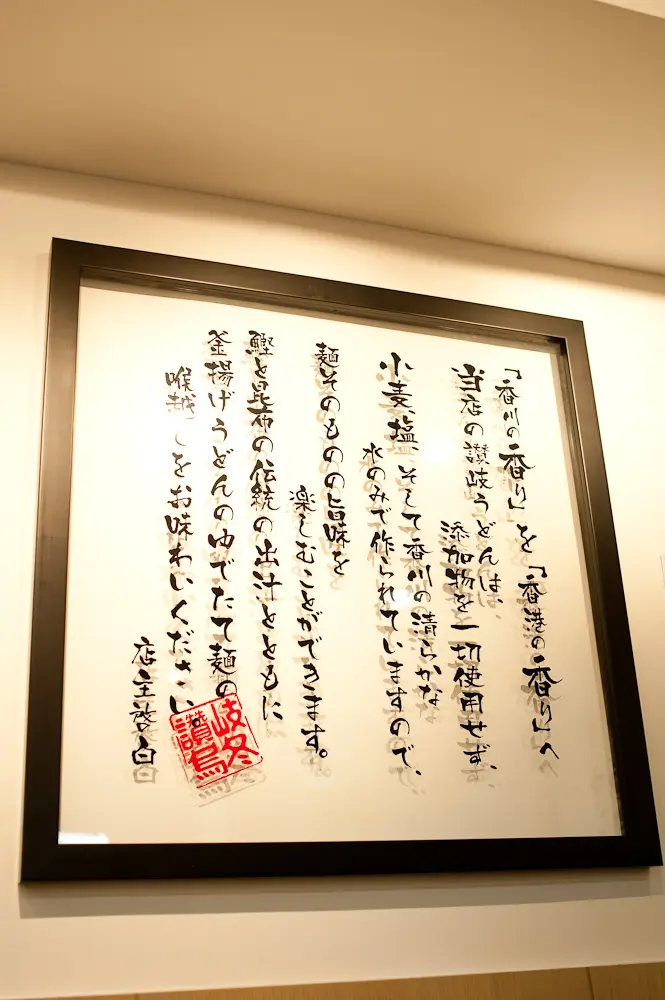 「香川の香り」を「香港の香り」へ
当店の讃岐うどんは、
添加物を一切使用せず、
小麦、塩、そして香川の清らかな
水のみで作られていますので、
麺そのものの旨味を
楽しむことができます。
鰹と昆布の伝統の出汁とともに
釜揚げうどんのゆでたて麺の
喉越しをお味わいください。
店主啓白
讃岐
烏冬